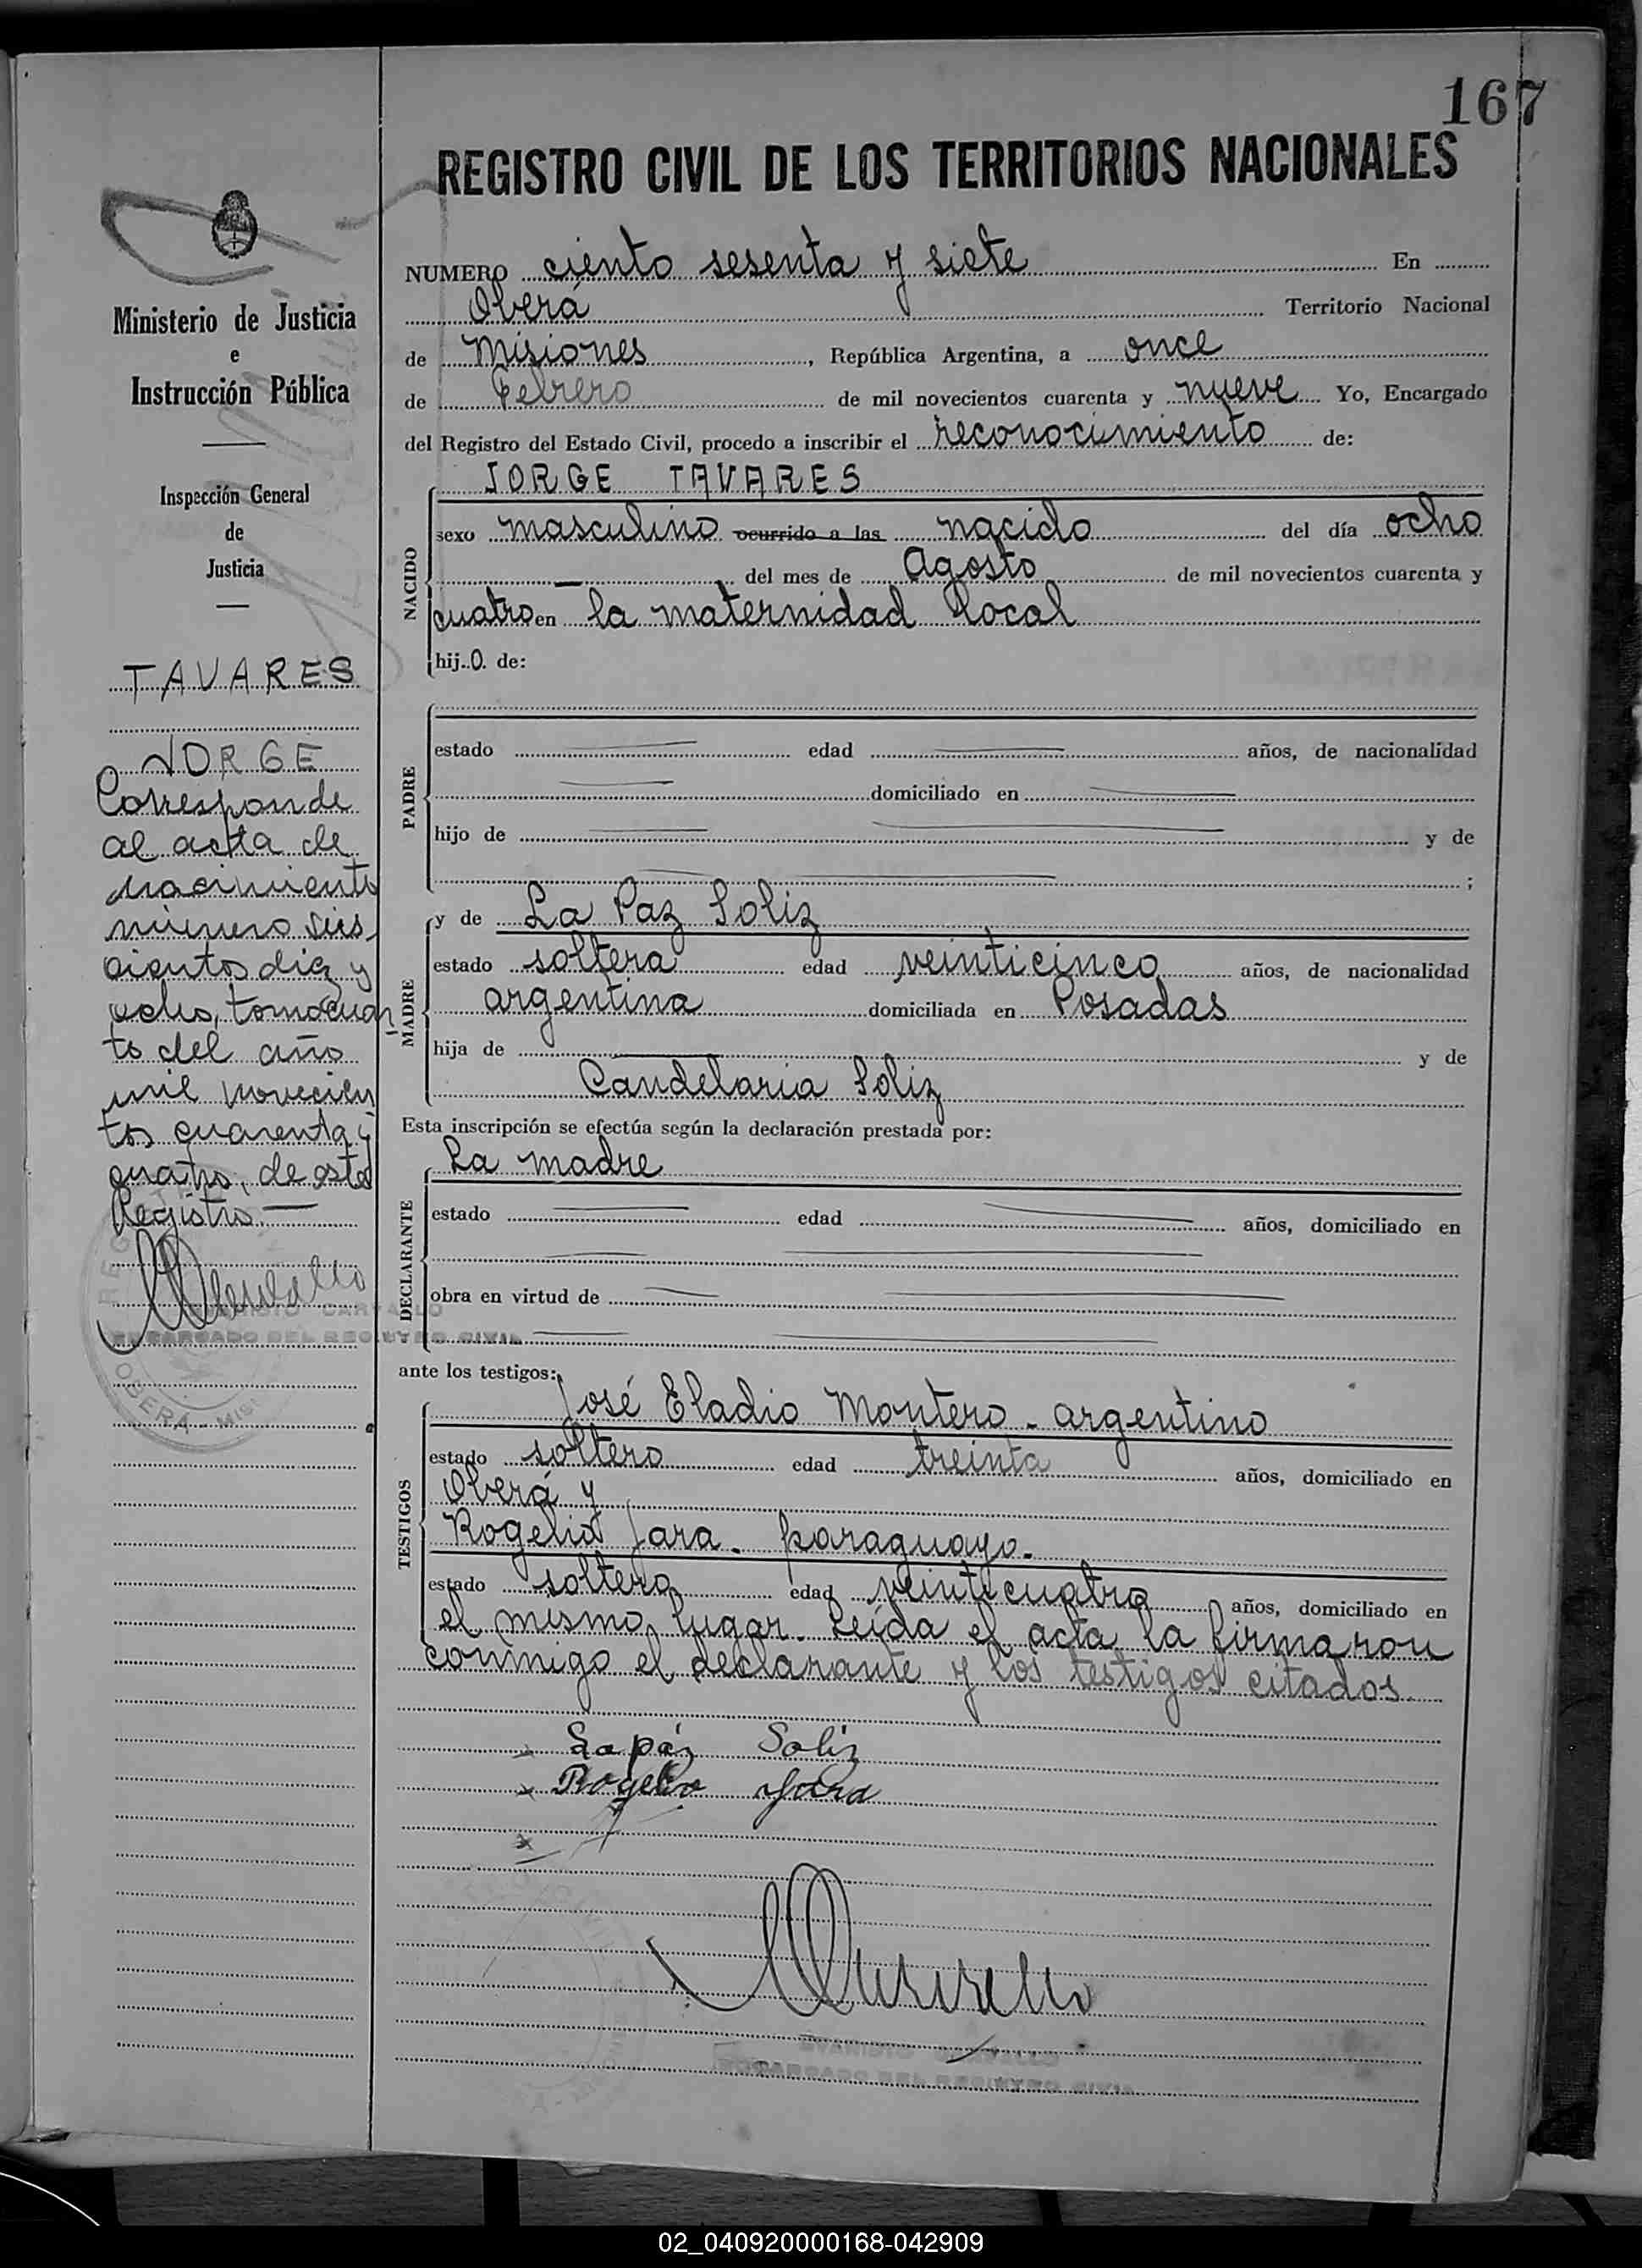 167
REGISTRO CIVIL DE LOS TERRITORIOS NACIONALES
NUMERO ciento sesenta y siete En
Oberá Territorio Nacional
de Misiones, República Argentina, a once
de Febrero de mil novecientos cuarenta y nueve Yo, Encargado
del Registro del Estado Civil, procedo a inscribir el reconocimiento de:
JORGE TAVARES
NACIDO
sexo masculino ocurrido a las nacido del día ocho
— del mes de Agosto de mil novecientos cuarenta y
cuatro en la maternidad local
hijo de:
PADRE
estado — edad — años, de nacionalidad
— domiciliado en —
hijo de — y de
— ;
MADRE
y de La Paz Soliz
estado soltera edad veinticinco años, de nacionalidad
argentina domiciliada en Posadas
hija de — y de
Candelaria Soliz
Esta inscripción se efectúa según la declaración prestada por:
DECLARANTE
La madre
estado — edad — años, domiciliado en
obra en virtud de —
ante los testigos:
TESTIGOS
José Eladio Montero - argentino
estado soltero edad treinta años, domiciliado en
Oberá y
Rogelio Jara. paraguayo.
estado soltero edad veinticuatro años, domiciliado en
el mismo lugar. Leída el acta la firmaron
conmigo el declarante y los testigos citados.
Lapáz Soliz
Rogelio Jara
ENCARGADO DEL REGISTRO CIVIL
Ministerio de Justicia
e
Instrucción Pública
Inspección General
de
Justicia
TAVARES
JORGE
Corresponde
al acta de
nacimiento
número seis
cientos diez y
ocho, tomo cuar
to del año
mil novecien
tos cuarenta y
cuatro, de este
Registro.—
ENCARGADO DEL REGISTRO CIVIL
OBERÁ - MIS
02_040920000168-042909